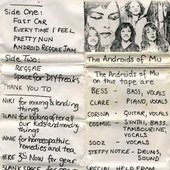 Side One:
FAST CAR
EVERY TIME I FEEL
PRETTY NUN
ANDROID REGGAE JAM
Side Two:
REGGAE
Space for DIY freaks
THANK YOU TO
NIKI for mixing & lending things
for looking after all our kids & mending things
for homeopathic remedies and tea
HERE & NOW for gear
The Androids of Mu
The Androids of MU on this tape are
BESS - BASS, VOCALS
CLARE - PIANO, VOCALS
CORINA - GUITAR, VOCALS
COSMIC - SYNTH, BASS, TAMBOURINE, VOCALS
SUZE - VOCALS
STEFFY NOTICE - DRUMS, SOUND
SPECIAL HELP FROM